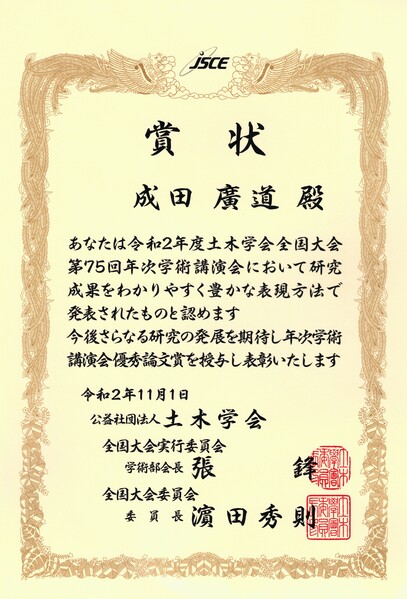 JSCE
賞状
成田 廣道 殿
あなたは令和2年度土木学会全国大会
第75回年次学術講演会において研究
成果をわかりやすく豊かな表現方法で
発表されたものと認めます
今後さらなる研究の発展を期待し年次学術
講演会優秀論文賞を授与し表彰いたします
令和2年11月1日
公益社団法人 土木学会
全国大会実行委員会
学術部会長 張 鋒
全国大会委員会
委員長 濵田秀則